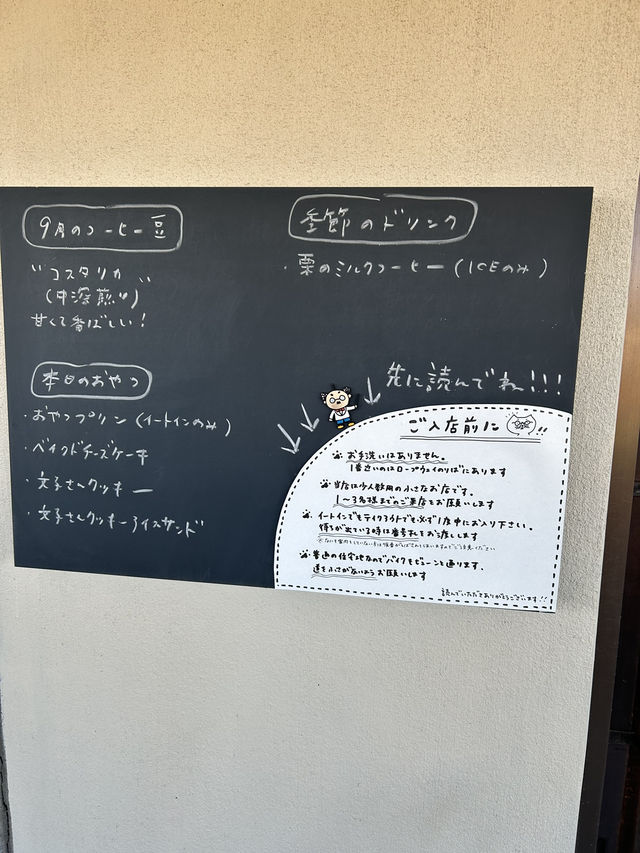 9月のコーヒー豆
"コスタリカ"
(中深煎り)
甘くて香ばしい!
本日のおやつ
・おやつプリン (イートインのみ)
・ベイクドチーズケーキ
・文子さんクッキー
・文子さんクッキーアイスサンド
季節のドリンク
・栗のミルクコーヒー (ICEのみ)
先に読んでね!!!
ご入店前に!!
お手洗いはありません。
1番近いのはロープウェイのりばにあります
当店は少人数用の小さなお店です。
1〜3名様までのご来店をお願いします
イートインでもテイクアウトでも必ず1度中にお入り下さい。
待ちが出ている時は番号札をお渡しします
普通の住宅地なのでバイクもビューンと通ります。
道をふさがないようお願いします
読んでいただきありがとうございます!!